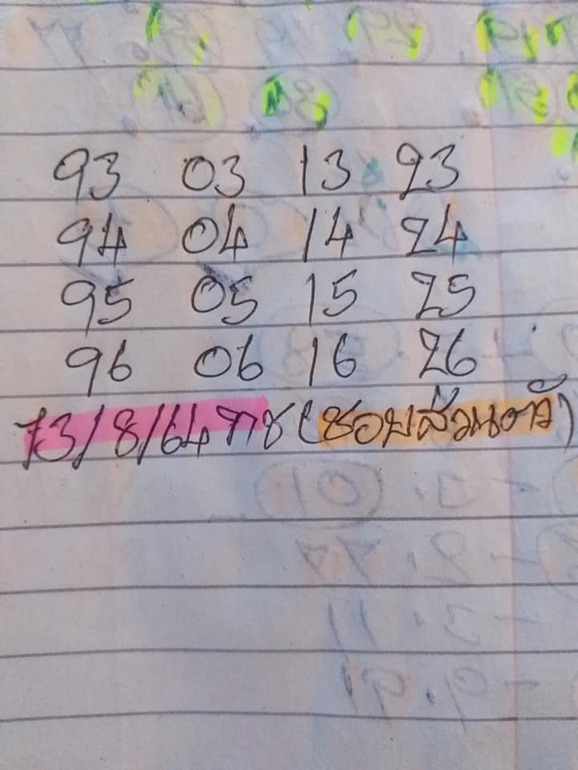 93 03 13 23
94 04 14 24
95 05 15 25
96 06 16 26
13/8/64 กช (ชอบส่วนตัว)